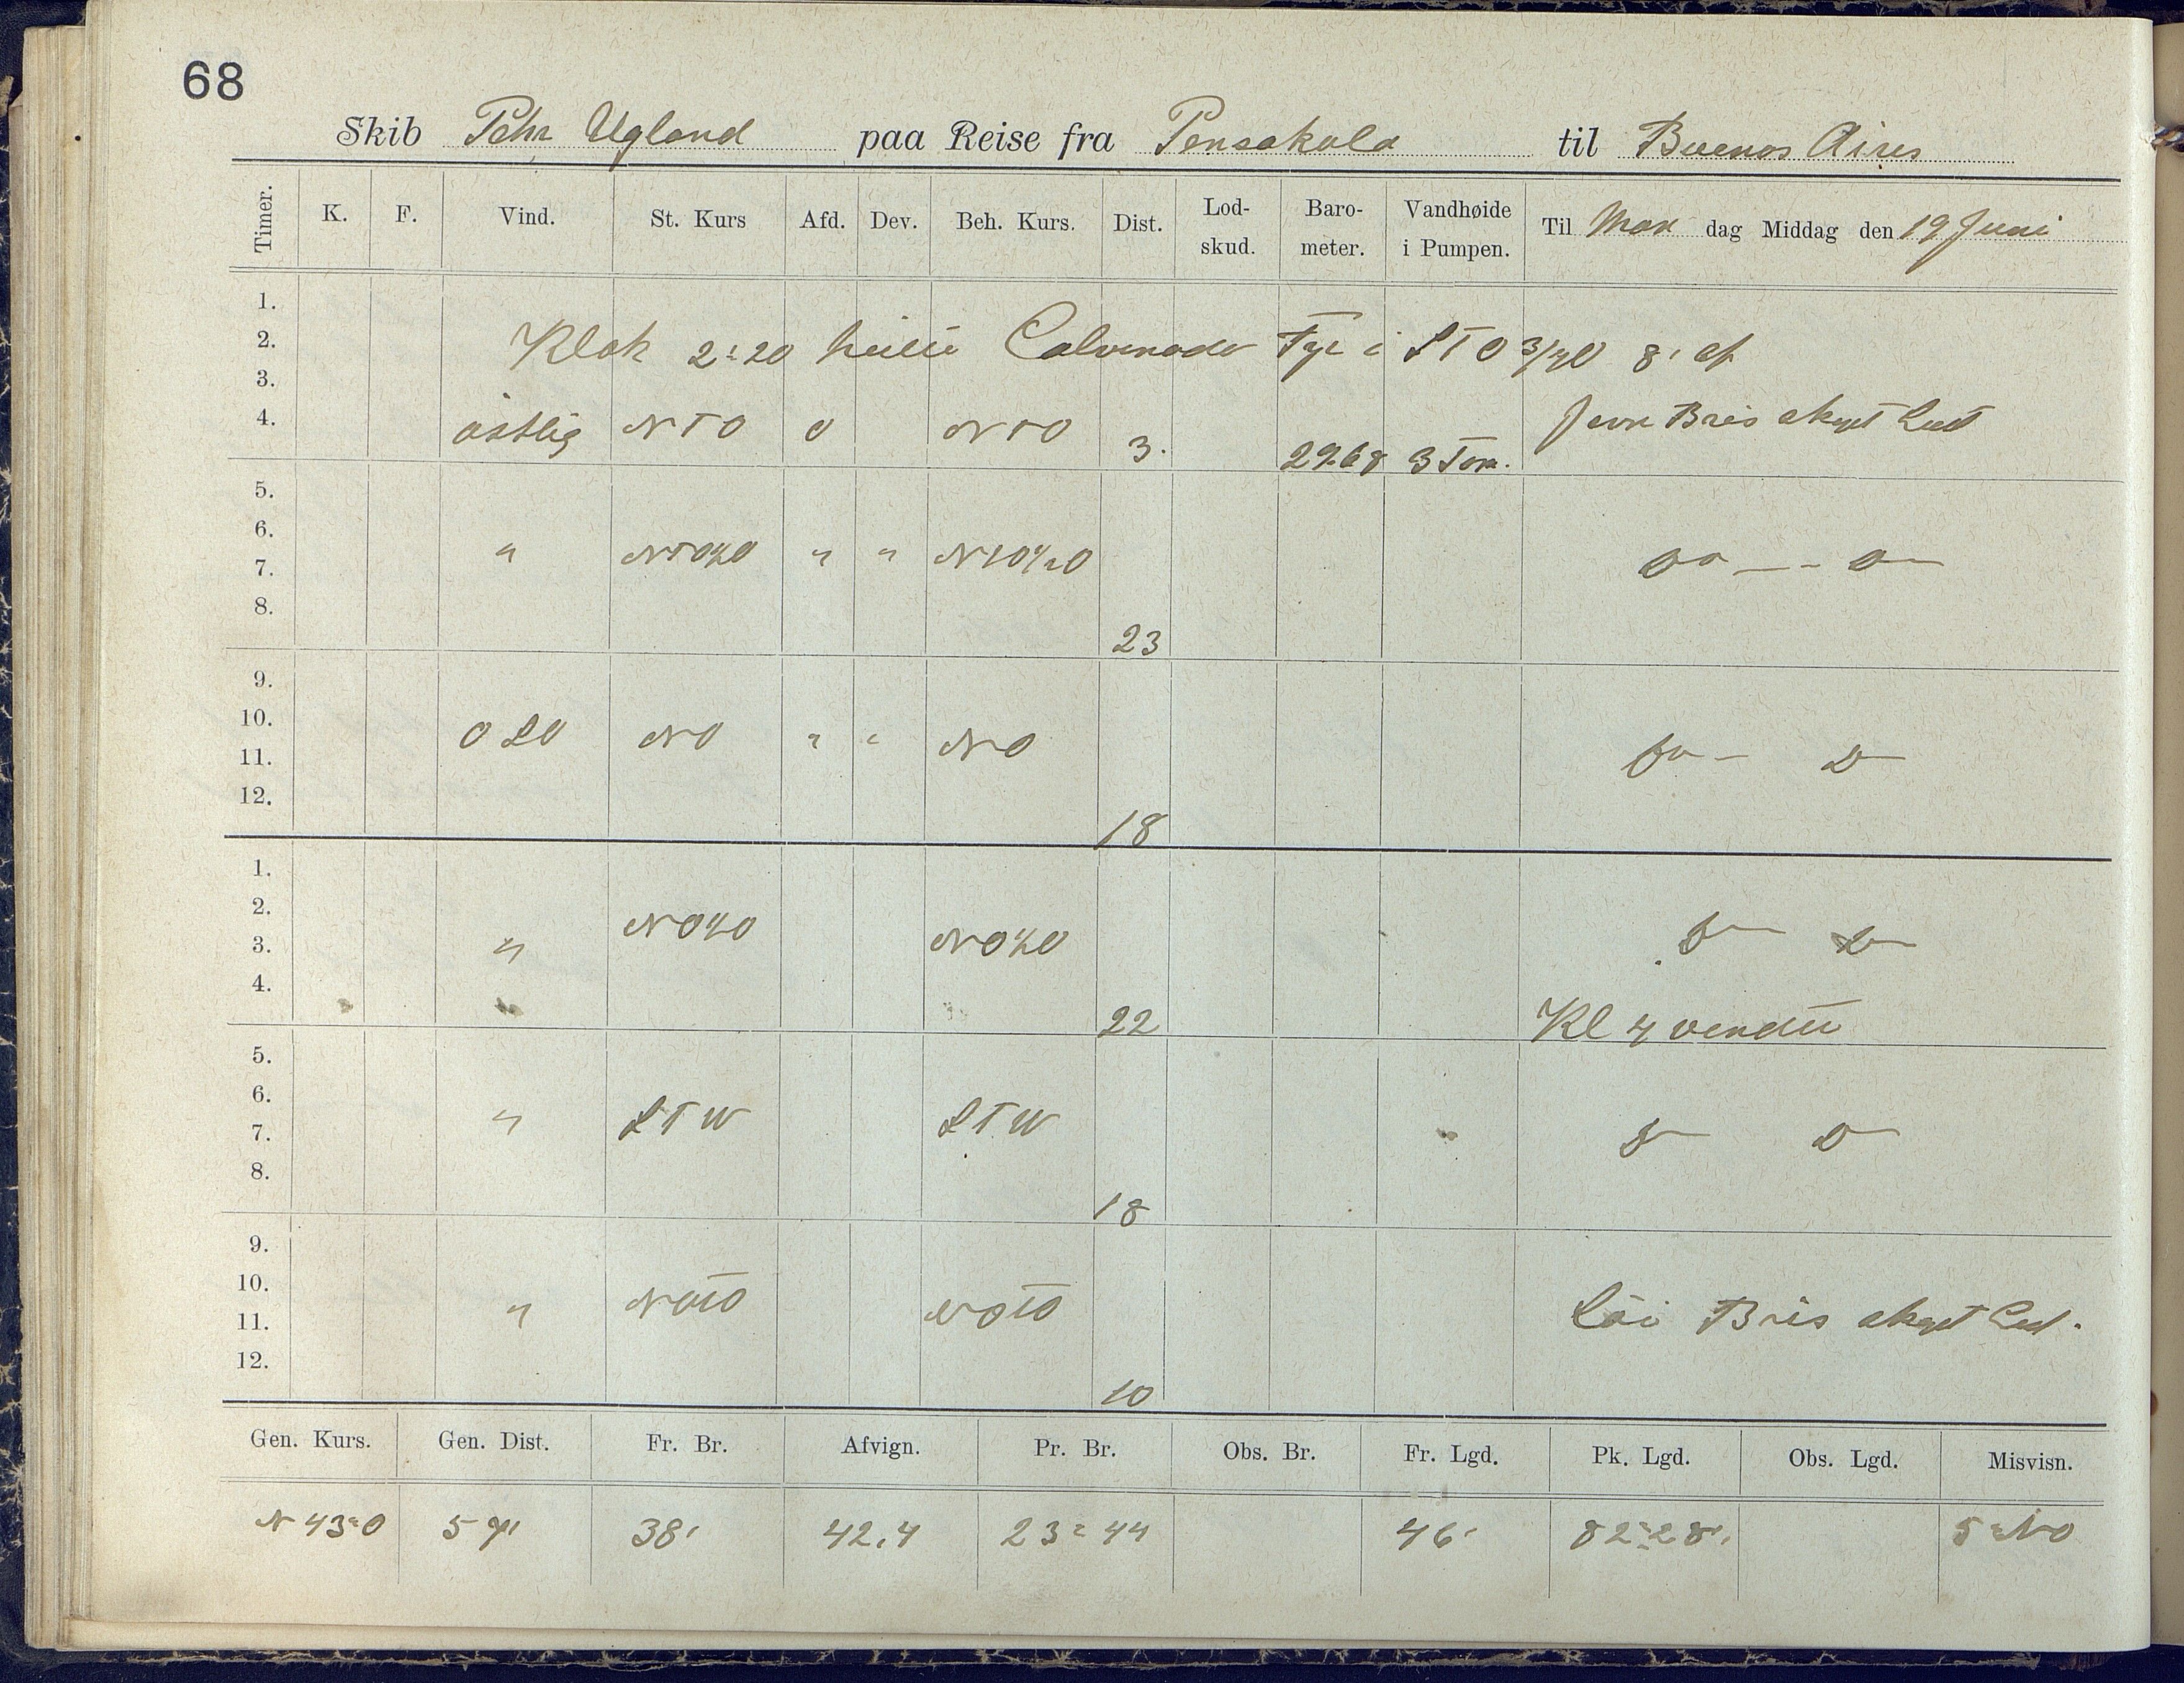 68
Skib Pehr Ugland paa Reise fra Pensakola til Buenos Aires
Timer. K. F. Vind. St. Kurs Afd. Dev. Beh. Kurs. Dist. Lod-skud. Baro-meter. Vandhøide i Pumpen. Til Man dag Middag den 19 Juni
1.
2. Klok 2:20 Fyr i STO 3/4 O 8' af
3.
4. östlig NTO 0 NTO 3. 29.68 3 Tom. Jevn Bris skyet Luft
5.
6.
7. " NTO½O " " NTO½O
8. 23
9.
10. OSO NO " " NO
11.
12. 18
1.
2. NO½O
3. " NO½O
4. 22 Kl 4 vendte
5.
6. " STW STW
7.
8. 18
9.
10. " NOTO NOTO
11. Löi Bris skyet Luft.
12. 10
Gen. Kurs. Gen. Dist. Fr. Br. Afvign. Pr. Br. Obs. Br. Fr. Lgd. Pk. Lgd. Obs. Lgd. Misvisn.
N 43° O 38' 42,4 23° 44 46' 82° 28' 5° NO